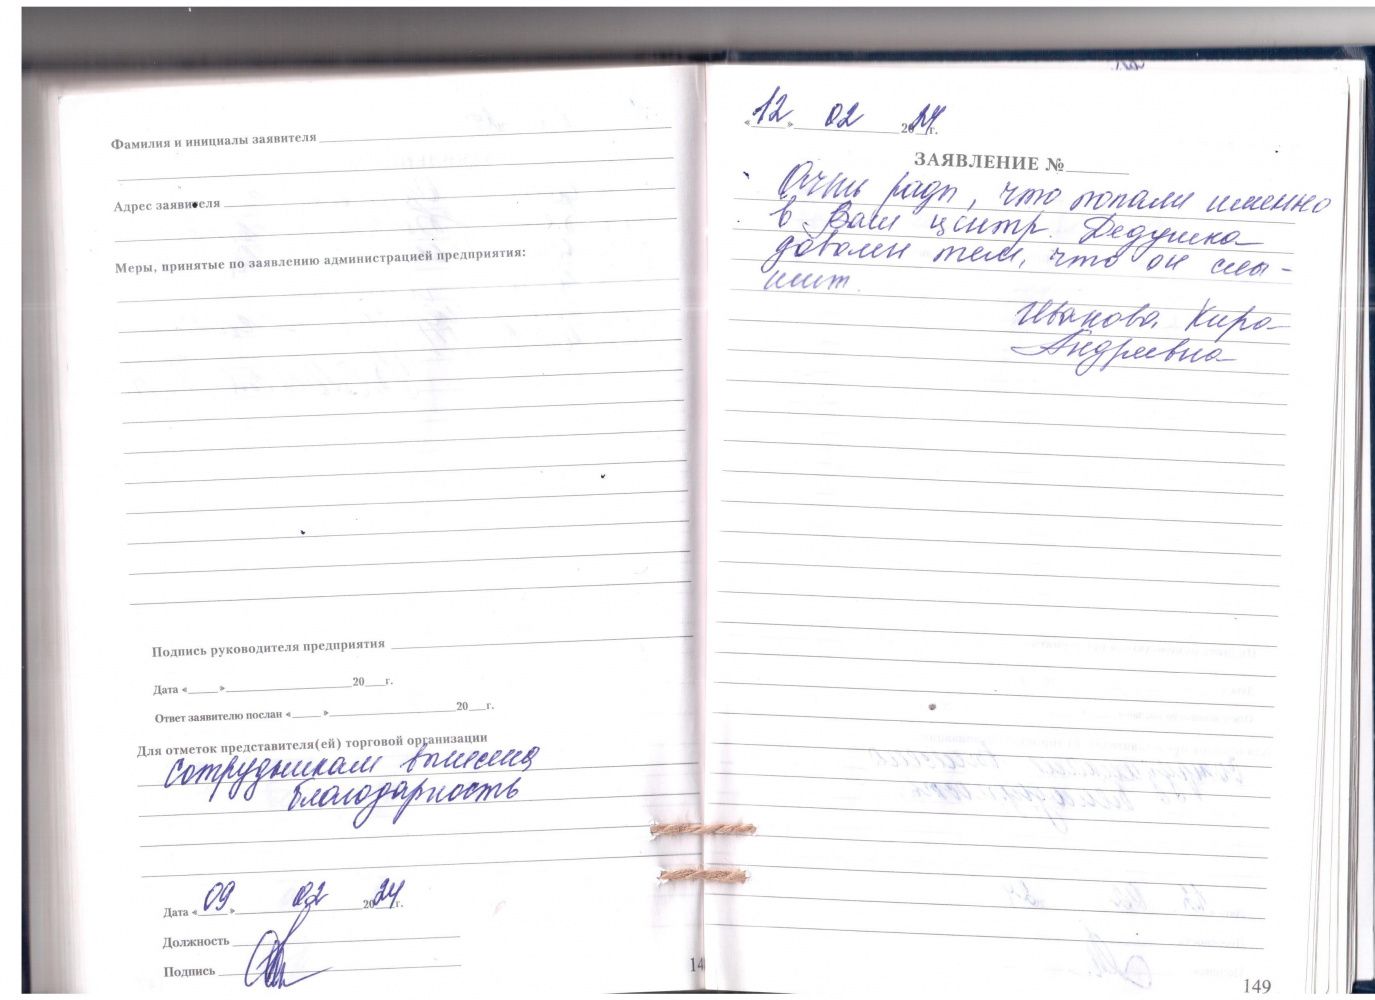 Фамилия и инициалы заявителя
Адрес заявителя
Меры, принятые по заявлению администрацией предприятия:
Подпись руководителя предприятия
Дата « » 20 г.
Ответ заявителю послан « » 20 г.
Для отметок представителя(ей) торговой организации
Сотрудникам вынесена
благодарность
Дата « 09 » 02 2024 г.
Должность
Подпись
14
« 12 » 02 2024 г.
ЗАЯВЛЕНИЕ №
Очень рады, что попали именно
в Ваш центр. Дедушка
доволен тем, что он слы-
шит.
Иванова Кира
Андреевна
149